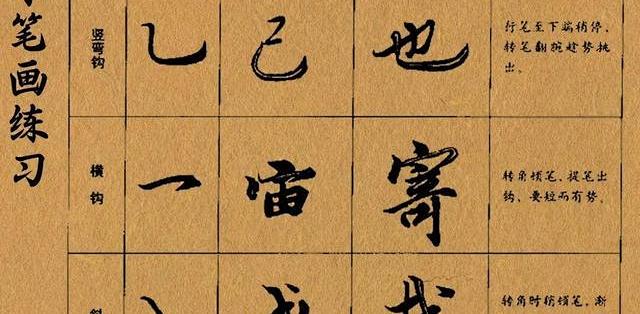 笔画练习
竖弯钩
乚
己
也
行笔至下端稍停,
转笔翻腕趁势挑
出。
横钩
乛
宙
寄
转角顿笔、提笔出
钩,要短而有势。
转角时稍顿笔,渐